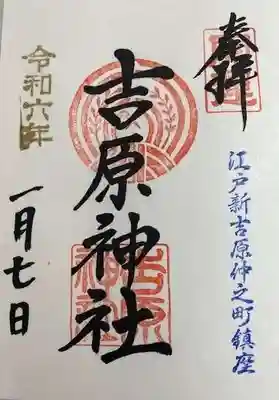 奉拝
江戸新吉原仲之町鎮座
吉原神社
令和六年
一月七日